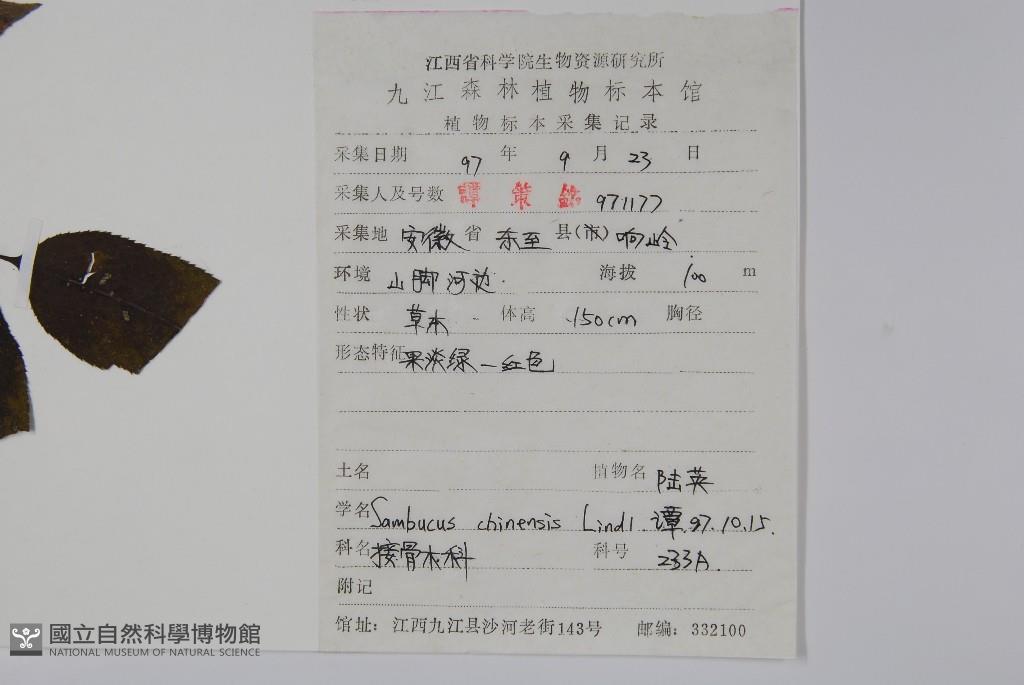 江西省科学院生物资源研究所
九江森林植物标本馆
植物标本采集记录
采集日期 97 年 9 月 23 日
采集人及号数 譚策銘 971177
采集地 安徽 省 东至 县(市) 响岭
环境 山脚河边. 海拔 100 m
性状 草本 体高 150cm 胸径
形态特征 果淡绿—红色
土名 植物名 陆英
学名 Sambucus chinensis Lindl. 谭.97.10.15.
科名 接骨木科 科号 233A.
附记
馆址：江西九江县沙河老街143号 邮编：332100
國立自然科學博物館
NATIONAL MUSEUM OF NATURAL SCIENCE